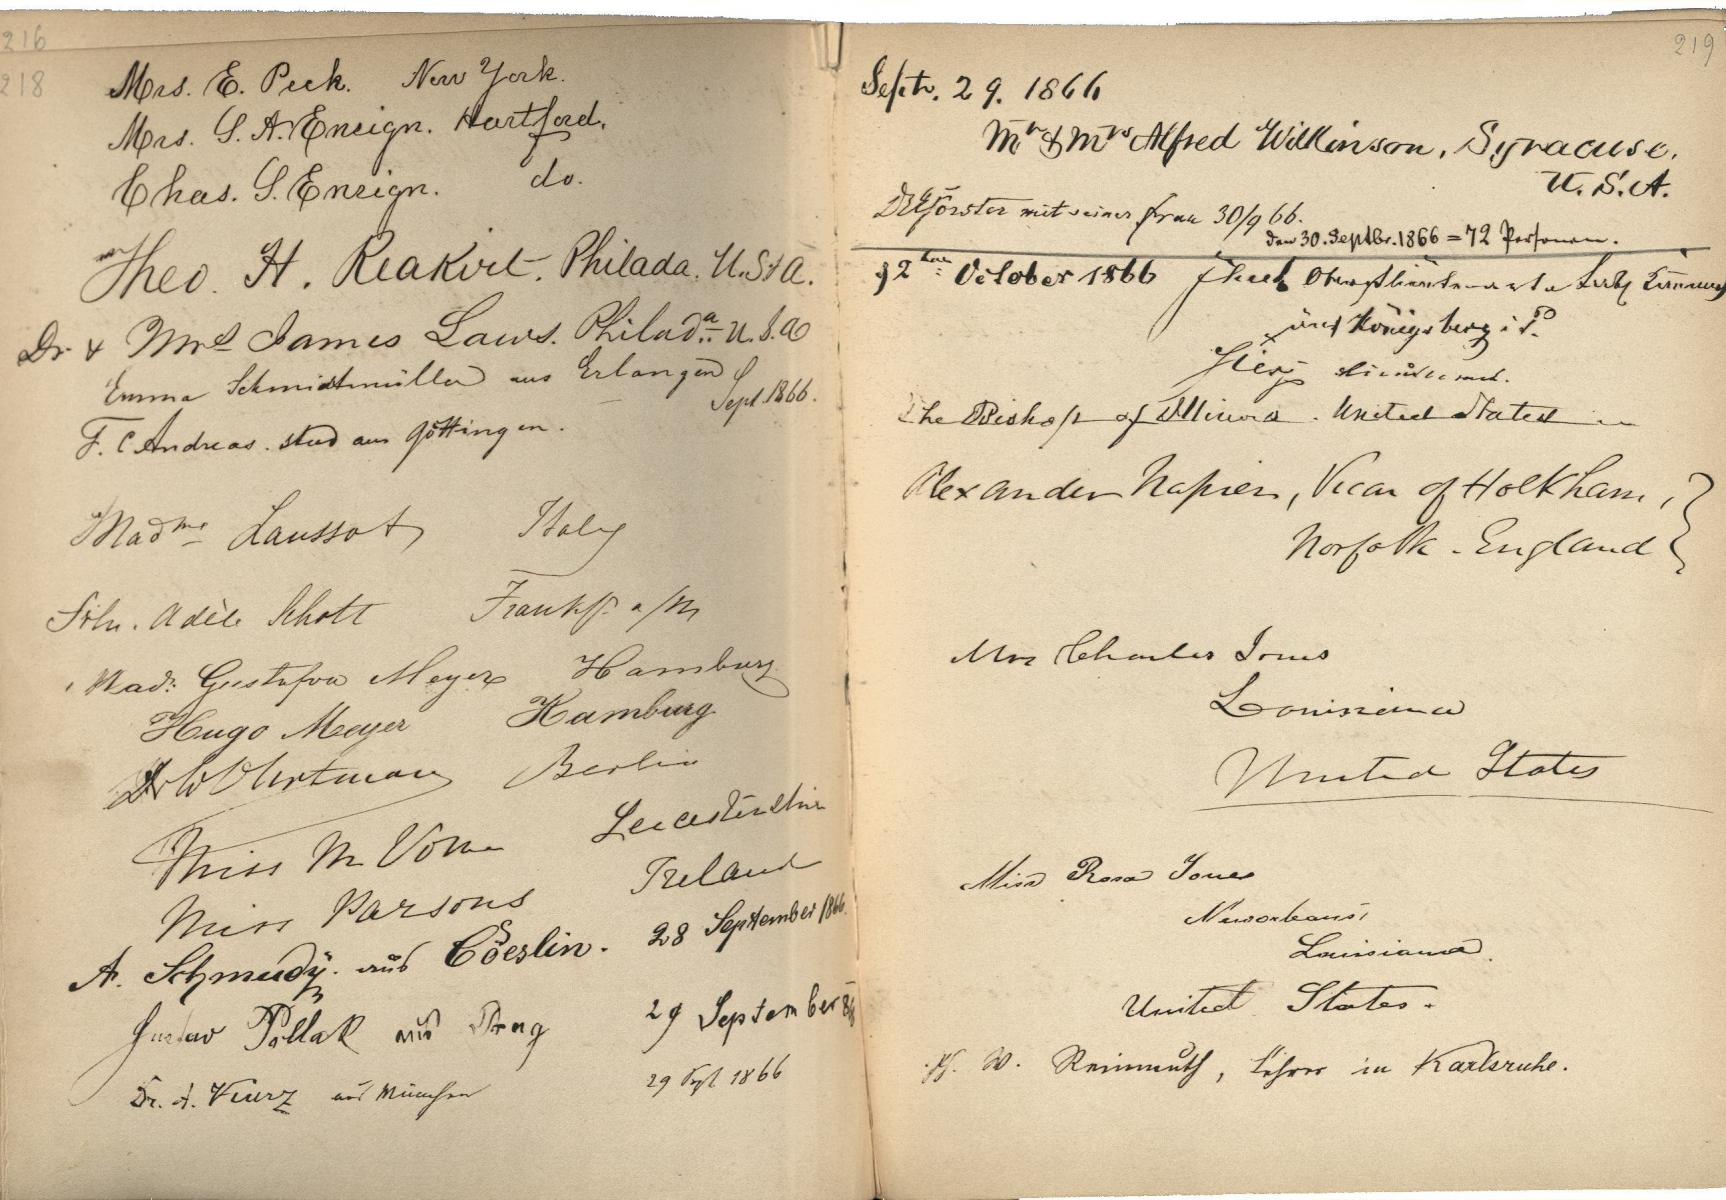 216
218
Mrs. E. Peck. New York.
Mrs. S. A. Ensign. Hartford.
Chas. S. Ensign. do.
Theo. H. Reakirt. Philada. U.S.A.
Dr. & Mrs James Laws. Philada. U.S.A
Emma Schmidtmüller aus Erlangen
Sept. 1866.
F. C. Andreas. stud aus Göttingen.
Madme Laussot Italy
Frln. Adèle Schott Frankf. a/M
Mad. Gustafva Meyer Hamburg
Hugo Meyer Hamburg
Dr W Berlin
Miss M Leicestershire
Miss Parsons Ireland
A. aus Cöeslin. 28 September 1866.
Gustav Pollak aus Prag 29 September 866
Dr. A. Kurz aus München 29 Sept 1866
219
Septr. 29. 1866
Mr & Mrs Alfred Wilkinson, Syracuse.
U.S.A.
Dr Förster mit seiner Frau 30/9 66.
Den 30. Septbr. 1866 = 72 Personen.
October 1866
aus Königsberg i. P.
The Bishop of Illinois. United States
Alexander Napier, Vicar of Holkham,
Norfolk - England
Mrs Charles Jones
Louisiana
United States
Miss Rosa Jones
Neworleans,
Louisiana.
United States.
W. Reinmuth, Lehrer in Karlsruhe.